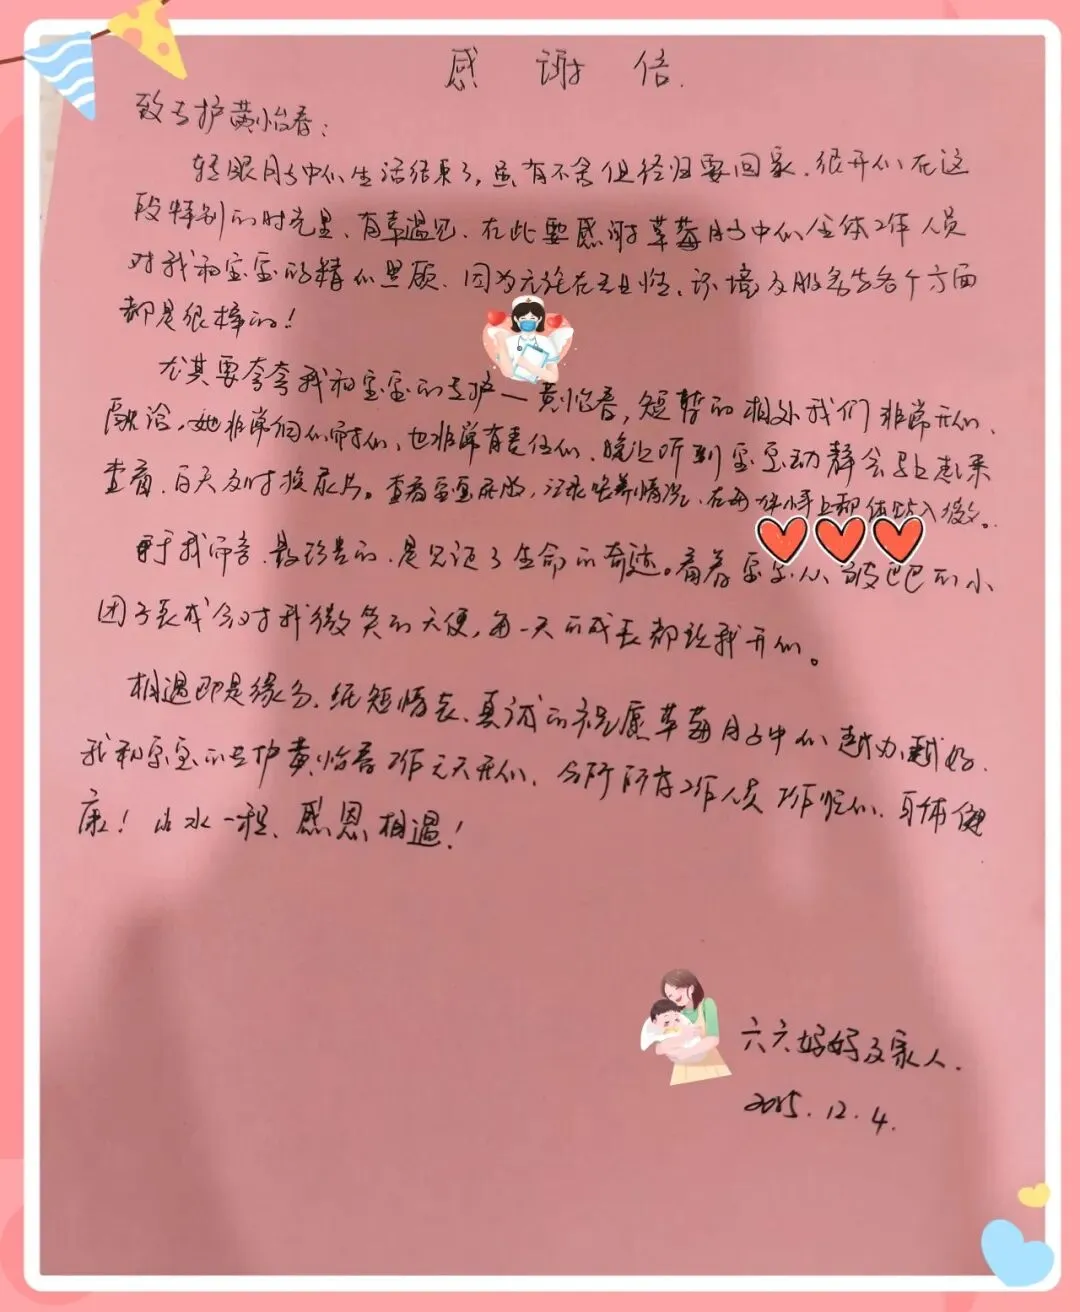 感谢信.
致专护黄怡春：
转眼月子中心生活结束了，虽有不舍但终归要回家.很开心在这
段特别的时光里、有幸遇见.在此要感谢草莓月子中心全体工作人员
对我和宝宝的精心照顾.因为无论在专业性、环境及服务等各个方面
都是很棒的！
尤其要夸夸我和宝宝的专护—黄怡春，短暂的相处我们非常开心、
融洽，她非常细心耐心，也非常有责任心、晚上听到宝宝动静会马上起来
查看，白天及时换尿片。查看宝宝尿，记录喂养情况，在每件事上都体贴入微。
对于我而言.最珍贵的，是见证了生命的奇迹。看着宝宝从皱巴巴的小
团子长成会对我微笑的天使，每一天的成长都让我开心。
相遇即是缘分.纸短情长、真诚的祝愿草莓月子中心越办越好.
我和宝宝的专护黄怡春工作天天开心、所有工作人员工作顺心、身体健
康！山水一程、感恩相遇！
六六妈妈及家人.
2025.12.4.